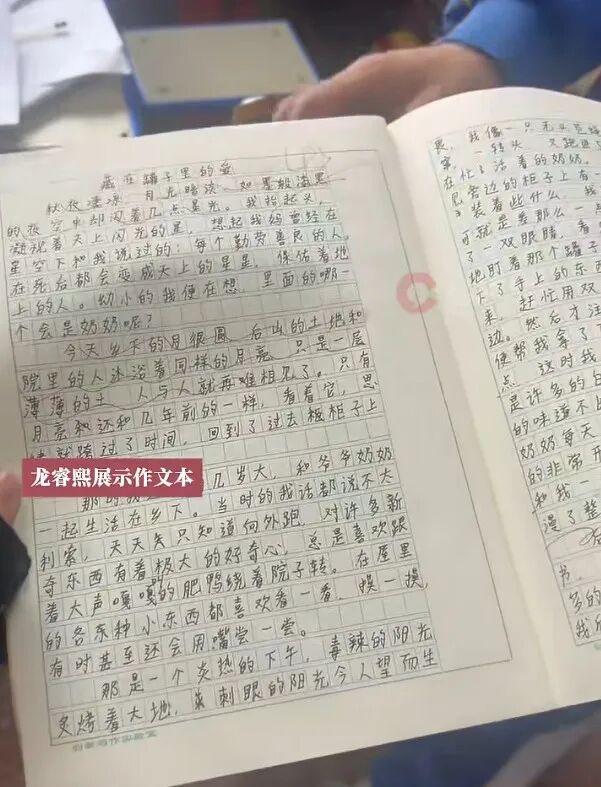 藏在罐子里的爱
秋夜漆凉,月光暗淡,如墨般漆黑
的夜空中却闪着几点星光。我抬起头,
凝视着天上闪光的星,想起我妈曾经在
星空下和我说过的:每个勤劳善良的人,
在死后都会变成天上的星星,保佑着地
上的人。幼小的我便在想,里面的哪一
个会是奶奶呢?
今天乡下的月很圆,后山的土地和
院里的人沐浴着同样的月亮,只是一层
薄薄的土,人与人就再难相见了。只有
月亮和还和几年前的一样,看着它,思
绪就跨过了时间,回到了过去柜子上
龙睿熙展示作文本
那时我 几岁大,和爷爷奶奶
一起生活在乡下。当时的我话都说不大
利索,天天矢只知道向外跑,对许多新
奇东西有着极大的好奇心,总是喜欢跟
着大声嘎嘎的肥鸭绕着院子转。在屋里
的各东种小东西都喜欢看一看,摸一摸,
有时甚至还会用嘴尝一尝。
那是一个炎热的下午,毒辣的阳光
炙烤着大地,刺眼的阳光令人望而生
畏,我像一只无头苍
一转头,又跑进
在忙活着的奶奶。
旁边的柜子上有一
装着些什么,我
可就是差那么一点
了一双眼睛,看
地盯着那个罐子
下了手上的东西
来,赶忙用双
边。然后才注
便帮我拿了下
点,这时我
是许多的白
的味道不比
奶奶每天
的非常开
和我一
漫了整
书,
多的
我后